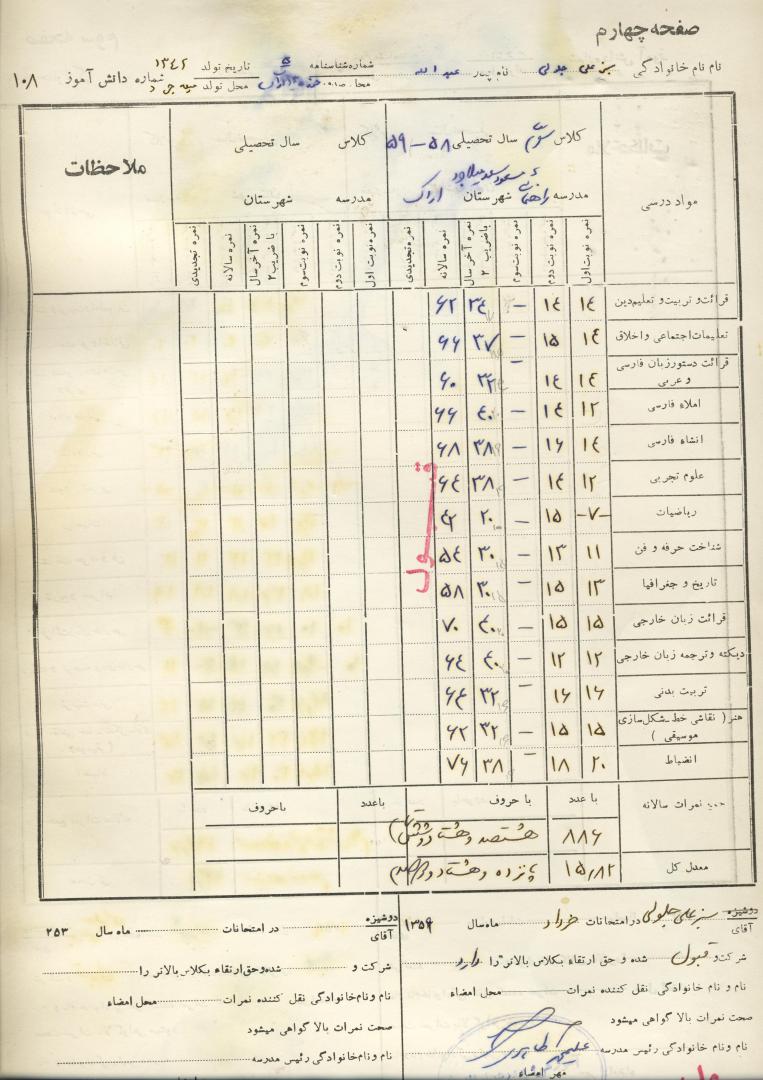 صفحه چهارم
نام نام خانوادگی سبزعلی نام پدر عبداله شماره شناسنامه ۵ تاریخ تولد ۱۳۴۲
محل تولد شماره دانش آموز ۱۰۸
مواد درسی کلاس سوم سال تحصیلی ۵۸-۵۹ کلاس سال تحصیلی ملاحظات
مدرسه راهنمائی مسعود سعد شهرستان اراک مدرسه شهرستان
نمره نوبت اول نمره نوبت دوم نمره نوبت سوم نمره آخر سال باضریب ۲ نمره سالانه نمره تجدیدی نمره نوبت اول نمره نوبت دوم نمره نوبت سوم نمره آخر سال با ضریب ۲ نمره سالانه نمره تجدیدی
قرائت و تربیت و تعلیم دین ۱۴ ۱۴ – ۳۴ ۶۲
تعلیمات اجتماعی و اخلاق ۱۴ ۱۵ – ۳۷ ۶۶
قرائت دستور زبان فارسی و عربی ۱۴ ۱۴ – ۳۲ ۶۰
املاء فارسی ۱۲ ۱۴ – ۴۰ ۶۶
انشاء فارسی ۱۴ ۱۶ – ۳۸ ۶۸
علوم تجربی ۱۲ ۱۴ – ۳۸ ۶۴
ریاضیات -۷- ۱۵ – ۲۰ ۴۲
شناخت حرفه و فن ۱۱ ۱۳ – ۳۰ ۵۴
تاریخ و جغرافیا ۱۳ ۱۵ – ۳۰ ۵۸
قرائت زبان خارجی ۱۵ ۱۵ – ۴۰ ۷۰
دیکته و ترجمه زبان خارجی ۱۲ ۱۲ – ۴۰ ۶۴
تربیت بدنی ۱۶ ۱۶ – ۳۲ ۶۴
هنر ( نقاشی خط ـ شکل سازی موسیقی ) ۱۵ ۱۵ – ۳۲ ۶۲
انضباط ۲۰ ۱۸ – ۳۸ ۷۶
قبول
جمع نمرات سالانه با عدد با حروف با عدد با حروف
۸۸۶ هشتصد و هشتاد و شش
معدل کل ۱۵/۸۲ پانزده و هشتاد و دو صدم
دوشیزه
آقای سبزعلی در امتحانات خرداد ماه سال ۱۳۵۹
شرکت و قبول شده و حق ارتقاء بکلاس بالاتر را دارد
نام و نام خانوادگی نقل کننده نمرات محل امضاء
صحت نمرات بالا گواهی میشود
نام و نام خانوادگی رئیس مدرسه
مهر امضاء
دوشیزه
آقای در امتحانات ماه سال ۲۵۳
شرکت و شده و حق ارتقاء بکلاس بالاتر را
نام و نام خانوادگی نقل کننده نمرات محل امضاء
صحت نمرات بالا گواهی میشود
نام و نام خانوادگی رئیس مدرسه